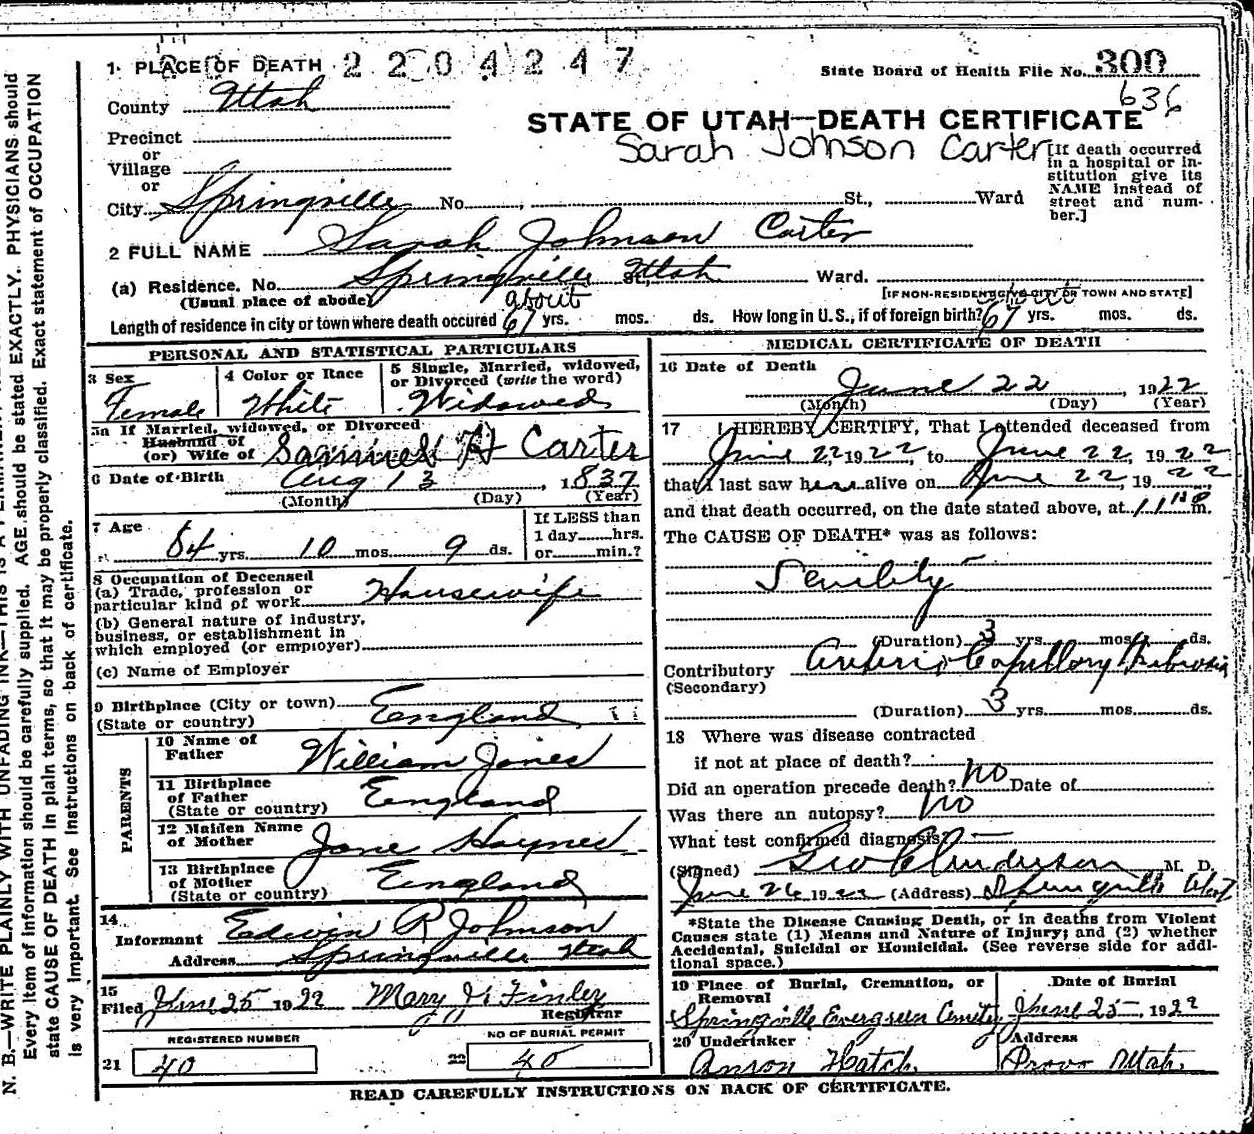 1 PLACE OF DEATH 2204247
State Board of Health File No. 300
County Utah
636
STATE OF UTAH—DEATH CERTIFICATE
Precinct
or
Village
or
Sarah Johnson Carter
[If death occurred
in a hospital or in-
stitution give its
NAME instead of
street and num-
ber.]
City Springville No. , St., Ward
2 FULL NAME Sarah Johnson Carter
(a) Residence. No. Springville St., Utah Ward.
(Usual place of abode)
[IF NON-RESIDENT GIVE CITY OR TOWN AND STATE]
about
Length of residence in city or town where death occured 67 yrs. mos. ds. How long in U.S., if of foreign birth? 67 yrs. mos. ds.
PERSONAL AND STATISTICAL PARTICULARS
3 Sex
Female
4 Color or Race
White
5 Single, Married, widowed,
or Divorced (write the word)
Widowed
5a If Married, widowed, or Divorced
Husband of
(or) Wife of H Carter
6 Date of Birth Aug 13, 1837
(Month) (Day) (Year)
7 Age
84 yrs. 10 mos. 9 ds.
If LESS than
1 day hrs.
or min.?
8 Occupation of Deceased
(a) Trade, profession or
particular kind of work Housewife
(b) General nature of industry,
business, or establishment in
which employed (or employer)
(c) Name of Employer
9 Birthplace (City or town)
(State or country) England
PARENTS
10 Name of
Father William Jones
11 Birthplace
of Father
(State or country) England
12 Maiden Name
of Mother Jane Haynes
13 Birthplace
of Mother
(State or country) England
14
Informant Edwin R Johnson
Address Springville Utah
15
Filed June 25 1922 Mary J. Finley
Registrar
REGISTERED NUMBER
21 40
NO OF BURIAL PERMIT
22 40
MEDICAL CERTIFICATE OF DEATH
16 Date of Death
June 22, 1922
(Month) (Day) (Year)
17 I HEREBY CERTIFY, That I attended deceased from
June 22, 1922, to June 22, 1922
that I last saw her alive on June 22 1922,
and that death occurred, on the date stated above, at 11 m.
The CAUSE OF DEATH* was as follows:
Senility
(Duration) 3 yrs. mos. ds.
Contributory Arterio Capillary Fibrosis
(Secondary)
(Duration) 3 yrs. mos. ds.
18 Where was disease contracted
if not at place of death?
Did an operation precede death? no Date of
Was there an autopsy? no
What test confirmed diagnosis? —
(Signed) Geo Anderson M. D.
June 26 1922 (Address) Springville Utah
*State the Disease Causing Death, or in deaths from Violent
Causes state (1) Means and Nature of Injury; and (2) whether
Accidental, Suicidal or Homicidal. (See reverse side for addi-
tional space.)
19 Place of Burial, Cremation, or
Removal
Springville Evergreen Cemetry
Date of Burial
June 25, 1922
20 Undertaker
Anson Hatch
Address
Provo Utah.
READ CAREFULLY INSTRUCTIONS ON BACK OF CERTIFICATE.
N. B.—WRITE PLAINLY WITH UNFADING INK—THIS IS A
Every item of information should be carefully supplied. AGE should be stated EXACTLY. PHYSICIANS should
state CAUSE OF DEATH in plain terms, so that it may be properly classified. Exact statement of OCCUPATION
is very important. See Instructions on back of certificate.